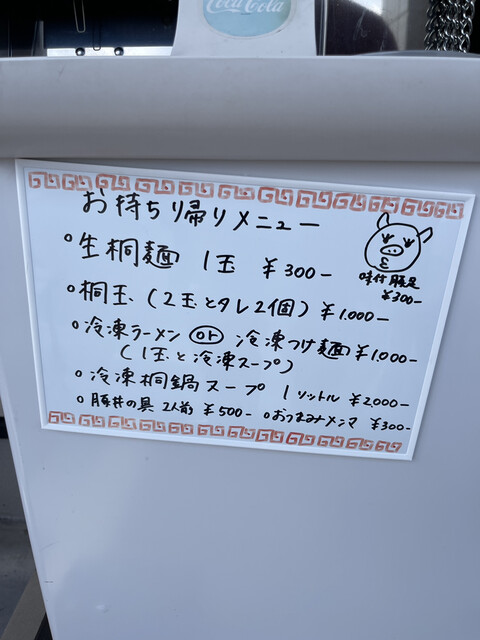 Coca-Cola
お持ち帰りメニュー
○生桐麺 1玉 ¥300-
味付豚足
¥300-
○桐玉(2玉とタレ2個)¥1.000-
○冷凍ラーメン or 冷凍つけ麺¥1,000-
(1玉と冷凍スープ)
○冷凍桐鍋スープ 1リットル ¥2,000-
○豚丼の具 2人前 ¥500- ○おつまみメンマ ¥300-